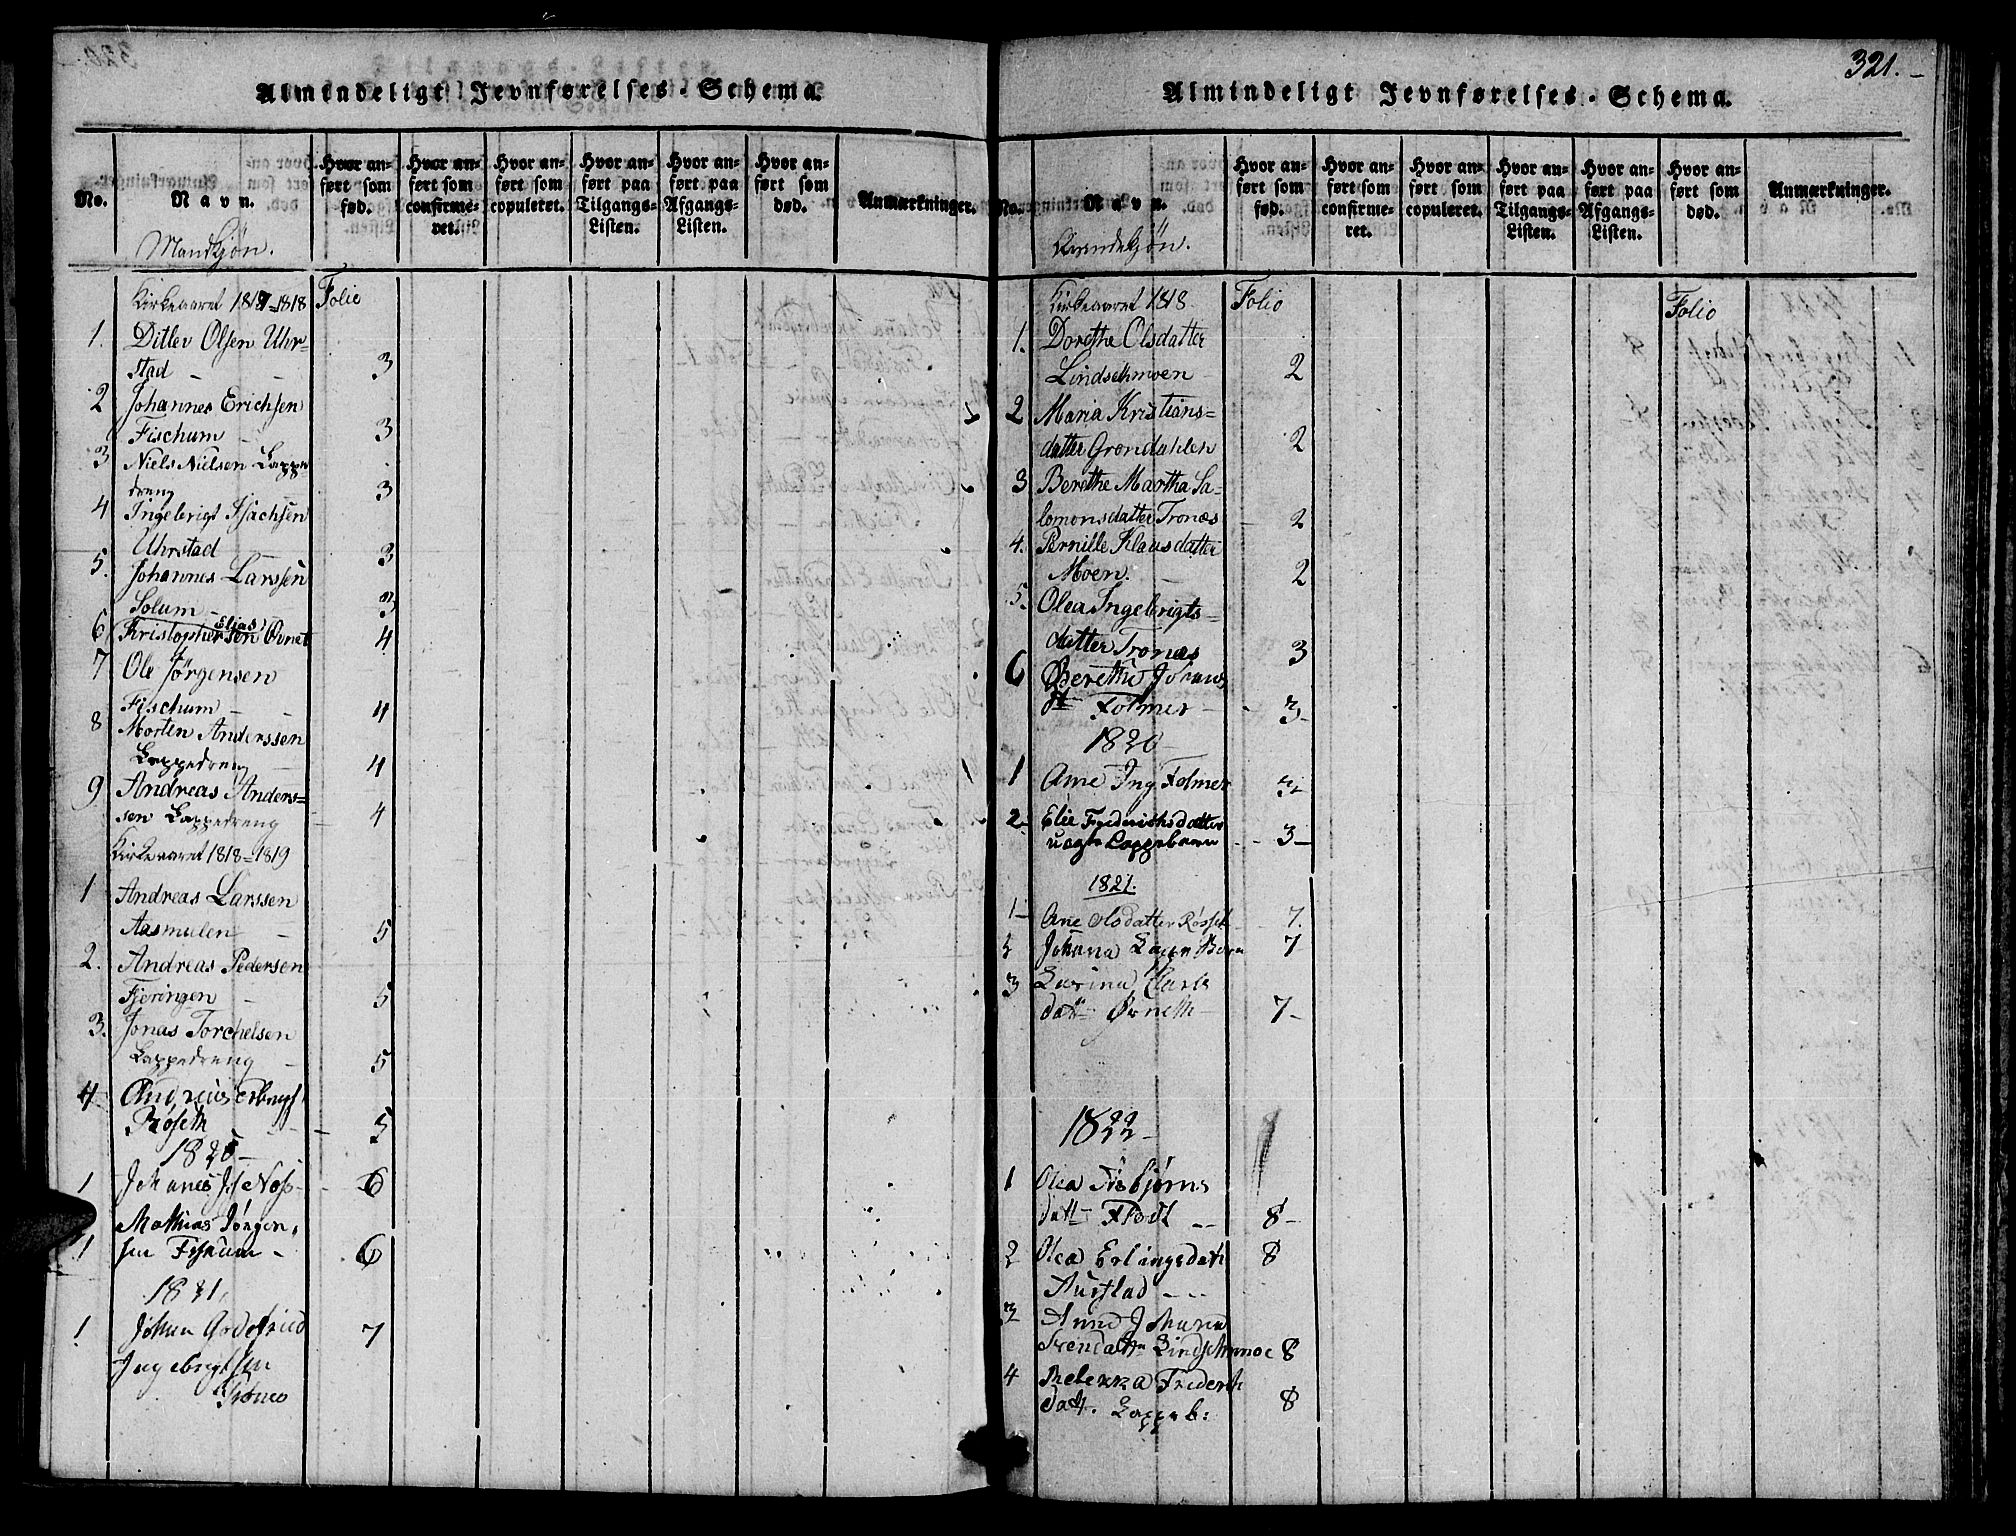 Almindeligt Jevnførelses-Schema.
No.
Navn.
Hvor an-
ført som
fød.
Hvor an-
ført som
confirme-
ret.
Hvor an-
ført som
copuleret.
Hvor an-
ført paa
Tilgangs-
Listen.
Hvor an-
ført paa
Afgangs-
Listen.
Hvor an-
ført som
død.
Anmærkninger.
Mandkjøn.
Kirkeaaret 1817-1818 Folio
1. Ditlev Olsen Uhr-
stad - - 3
2 Johannes Erichsen
Fischum - 3
3 Niels Nielsen Lappe
dreng 3
4 Ingebrigt Isachsen
Uhrstad - 3
5. Johannes Larssen
Solum - 3
Elias
6 Kristophersen Øvnet 4
7 Ole Jørgensen
Fischum - - 4
8 Morten Anderssen
Lappedreng - 4
9 Andreas Anders=
sen Lappedreng - 4
Kirkeaaret 1818=1819
1 Andreas Larssen
Aasmulen - 5
2. Andreas Pedersen
Fjeringen - 5
3. Jonas Torchelsen
Lappedreng - 5
4. Andreas
Røseth - - 5
1820-
1 Johanes 6
Mathias Jørgen-
1 sen Fiskum - 6
1821.
1 Johan Godtfried 7
Ingebrigtsen
Trones
321.-
Almindeligt Jevnførelses-Schema.
No.
Navn.
Hvor an-
ført som
fød.
Hvor an-
ført som
confirme-
ret.
Hvor an-
ført som
copuleret.
Hvor an-
ført paa
Tilgangs-
Listen.
Hvor an-
ført paa
Afgangs-
Listen.
Hvor an-
ført som
død.
Anmærkninger.
Kvindekjøn.
Kirkeaaret 1818 Folio Folio
1. Dorethe Olsdatter
Lindsethmoen - 2
2 Maria Kristians=
datter Grøndahlen 2
3 Berethe Martha Sa-
lomonsdatter Tronæs - 2
4. Pernille Klausdatter
Moen. - 2
5. Olea Ingebrigts=
datter Tronæs 3
6 Berethe Jonas
dt Folmer - 3-
1820-
1 Ane Ing Folmer 3-
2- Elie Frederichsdatter
uægte Lappebarn - - 3-
1821.
1- Ane Olsdatter Røsset - 7.
2 Johanna Lappe Barn 7-
3 Larina Clars
datt Øvneth - 7-
1822-
1 Olea Esbjørns
datt- Flodt - - 8-
2 Olea Erlingsdatt 8
Aurstad - - -
3 Anne Johanna
Lindsethmoe 8
4 Rebekka Frederik
datt. Lappeb: 8